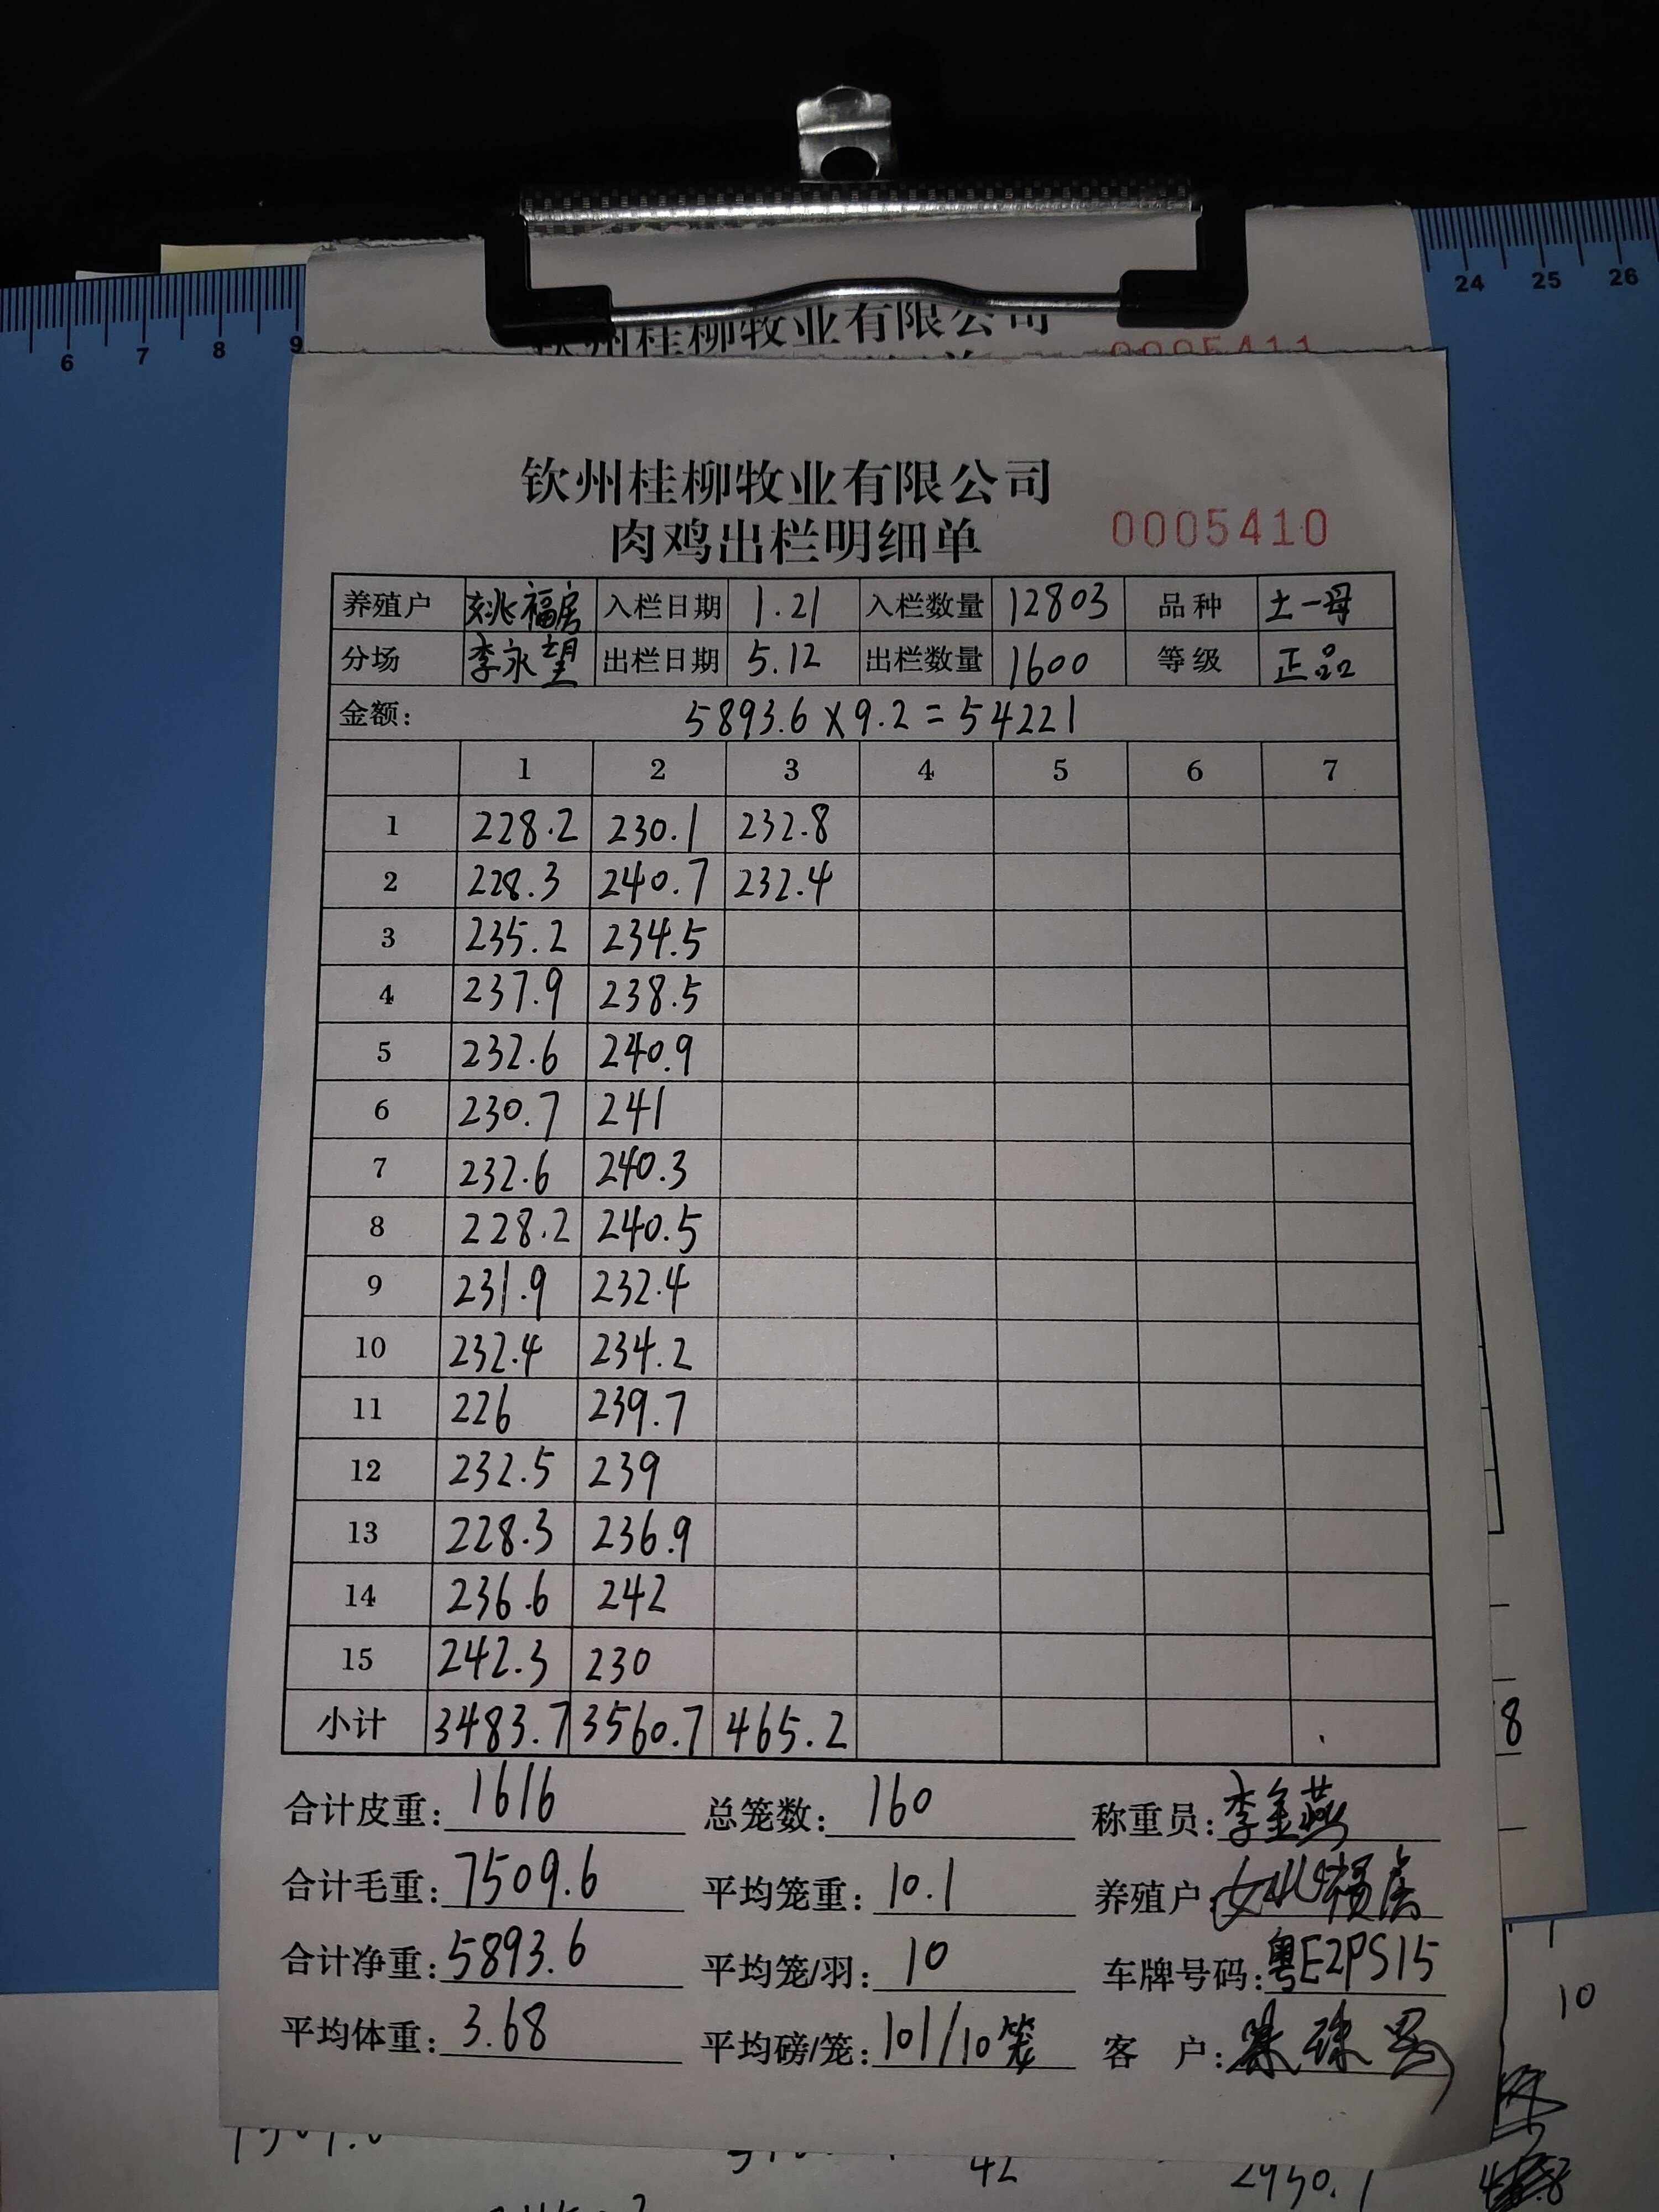 6 7 8 9 24 25 26
钦州桂柳牧业有限公司
0005411
钦州桂柳牧业有限公司
肉鸡出栏明细单 0005410
养殖户 姚福房 入栏日期 1.21 入栏数量 12803 品种 土一母
分场 李永望 出栏日期 5.12 出栏数量 1600 等级 正品
金额: 5893.6×9.2=54221
1 2 3 4 5 6 7
1 228.2 230.1 232.8
2 228.3 240.7 232.4
3 235.2 234.5
4 237.9 238.5
5 232.6 240.9
6 230.7 241
7 232.6 240.3
8 228.2 240.5
9 231.9 232.4
10 232.4 234.2
11 226 239.7
12 232.5 239
13 228.3 236.9
14 236.6 242
15 242.3 230
小计 3483.7 3560.7 465.2
合计皮重: 1616 总笼数: 160 称重员: 李金燕
合计毛重: 7509.6 平均笼重: 10.1 养殖户: 姚福房
合计净重: 5893.6 平均笼/羽: 10 车牌号码: 粤E2PS15
平均体重: 3.68 平均磅/笼: 101/10笼 客户:
8
10
42 2950.1